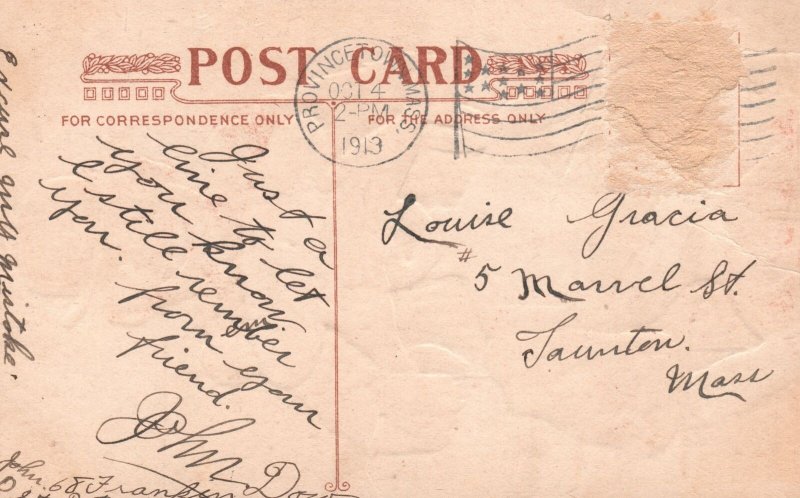 POST CARD
FOR CORRESPONDENCE ONLY
FOR THE ADDRESS ONLY
PROVINCETOWN MASS.
OCT 4
2-PM
1913
Just a
line to let
you know
I still remember
you. from your
friend.
John
Louise Gracia
# 5 Marvel St.
Taunton.
Mass
John. 68